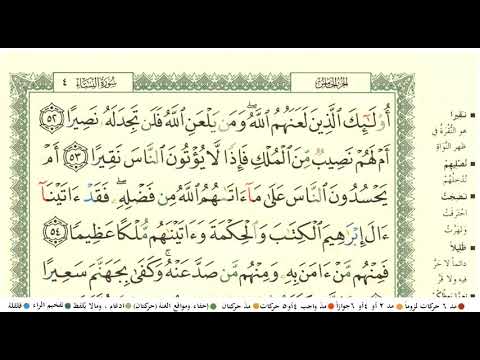 سُورَةُ النِّسَاءِ ٤
الجزء الخامس
أُو۟لَٰٓئِكَ ٱلَّذِينَ لَعَنَهُمُ ٱللَّهُ ۖ وَمَن يَلْعَنِ ٱللَّهُ فَلَن تَجِدَ لَهُۥ نَصِيرًا ٥٢
أَمْ لَهُمْ نَصِيبٌ مِّنَ ٱلْمُلْكِ فَإِذًا لَّا يُؤْتُونَ ٱلنَّاسَ نَقِيرًا ٥٣ أَمْ
يَحْسُدُونَ ٱلنَّاسَ عَلَىٰ مَآ ءَاتَىٰهُمُ ٱللَّهُ مِن فَضْلِهِۦ ۖ فَقَدْ ءَاتَيْنَآ
ءَالَ إِبْرَٰهِيمَ ٱلْكِتَٰبَ وَٱلْحِكْمَةَ وَءَاتَيْنَٰهُم مُّلْكًا عَظِيمًا ٥٤
فَمِنْهُم مَّنْ ءَامَنَ بِهِۦ وَمِنْهُم مَّن صَدَّ عَنْهُ ۚ وَكَفَىٰ بِجَهَنَّمَ سَعِيرًا
نَقِيرًا
هو النُّقْرَةُ في
ظهر النَّوَاةِ
نُصْلِيهِمْ
نُدخِلُهُمْ
نَضِجَتْ
احترقت
وتهرَّت
ظَلِيلًا
دائماً لا حرَّ
فيه ولا قر
مد ٦ حركات لزوما مد ٢ أو ٤ أو ٦ جوازاً مد واجب ٤ أو ٥ حركات مد حركتان إخفاء، ومواقع الغنة (حركتان) ادغام، ومالا يلفظ تفخيم الراء قلقلة